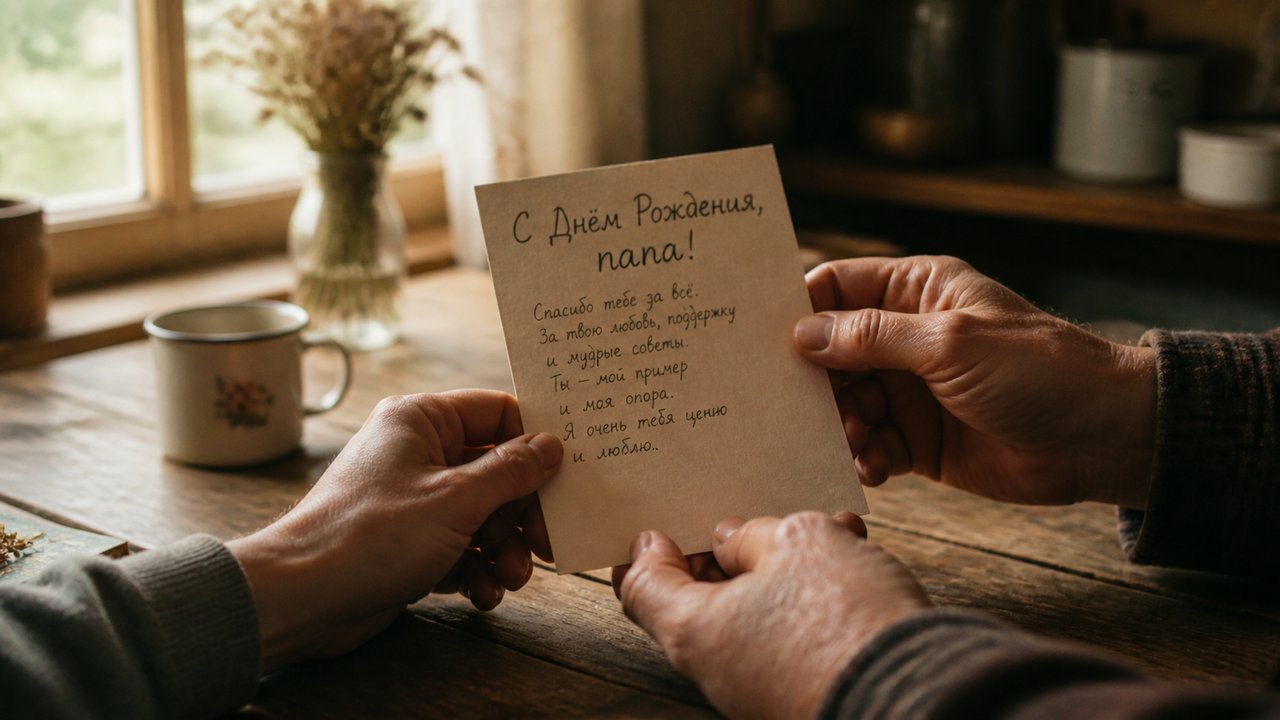 С Днём Рождения,
папа!
Спасибо тебе за всё.
За твою любовь, поддержку
и мудрые советы.
Ты – мой пример
и моя опора.
Я очень тебя ценю
и люблю..